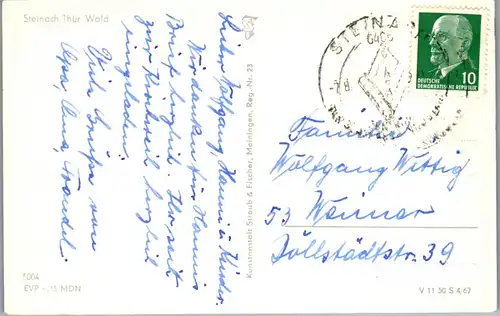 Steinach Thür. Wald
Lieber Wolfgang, Hanni u. Kinder.
Wir danken für Hannis
Brief herzlich. Ihr seit
zur Kirchweih herzlich
eingeladen.
Viele Grüße von
Opa, Oma, Traudel.
5004
EVP -,15 MDN
Kunstanstalt Straub & Fischer, Meiningen, Reg.-Nr. 23
STEINACH
DEUTSCHE
DEMOKRATISCHE REPUBLIK
10
Familie
Wolfgang Wittig
53 Weimar
Döllstädtstr. 39
V 11 50 S 4,62